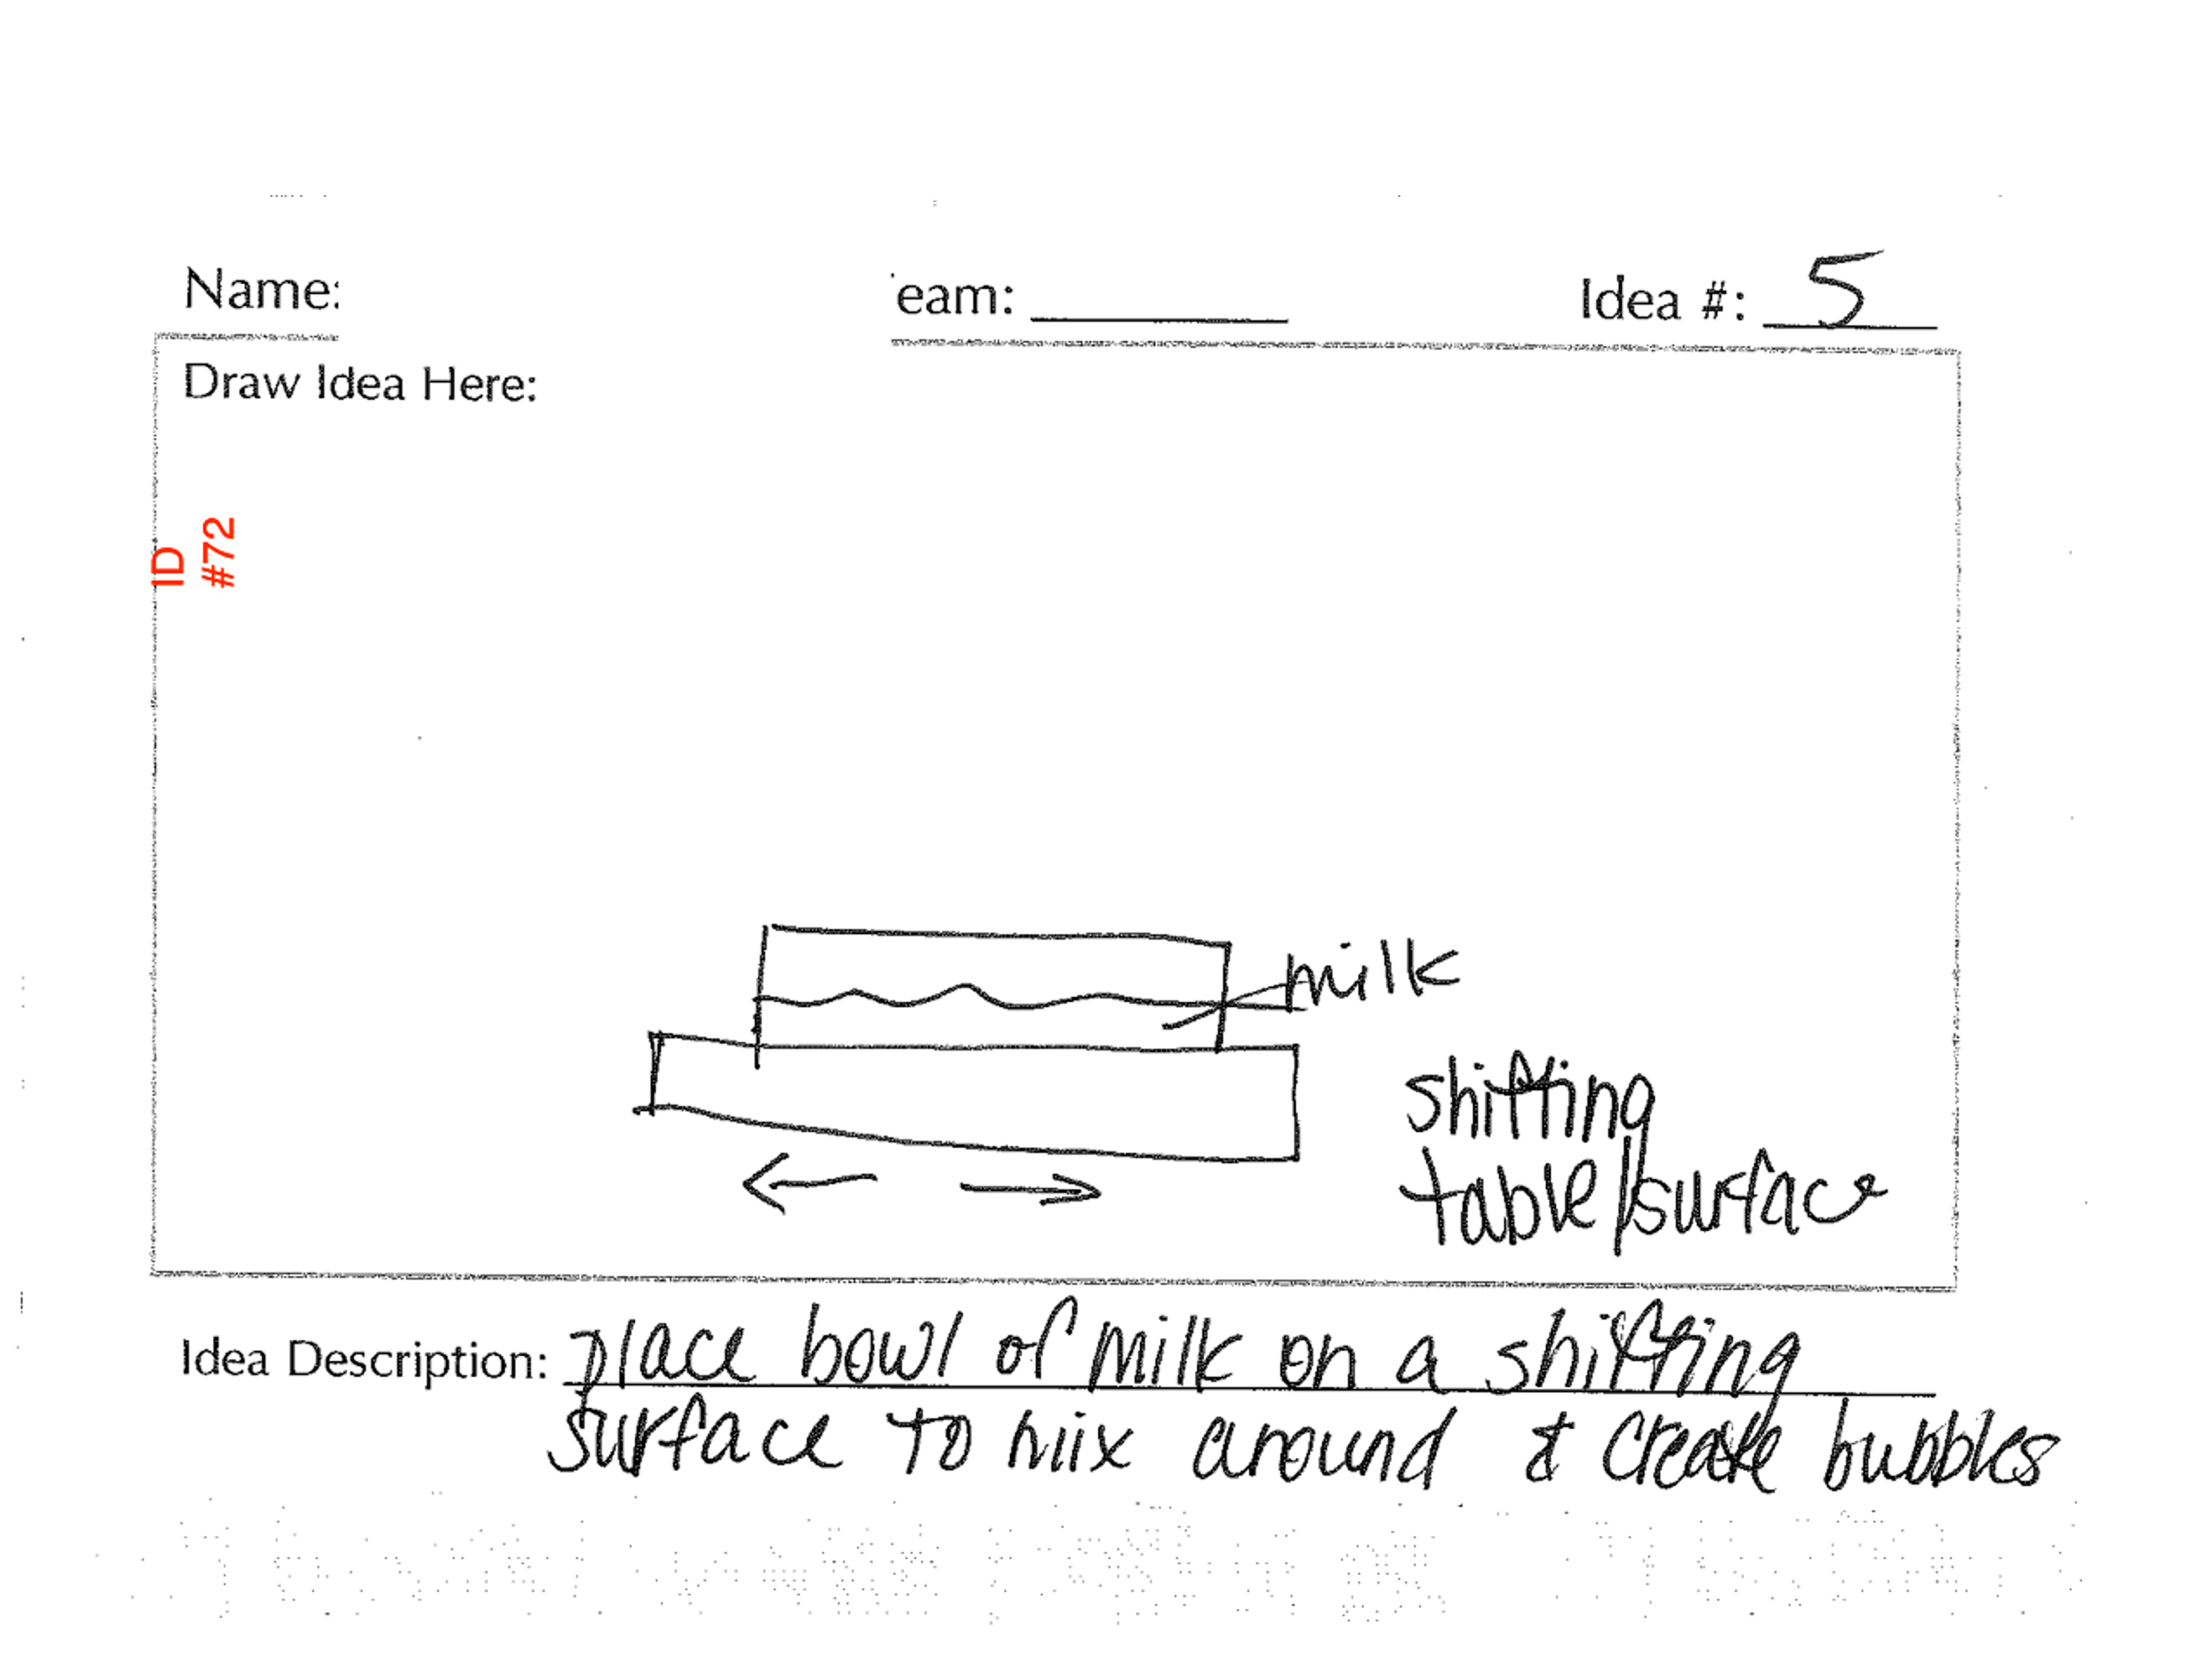 Name:
eam:
Idea #: 5
Draw Idea Here:
ID
#72
milk
shifting
table/surface
Idea Description: place bowl of milk on a shifting
surface to mix around & create bubbles